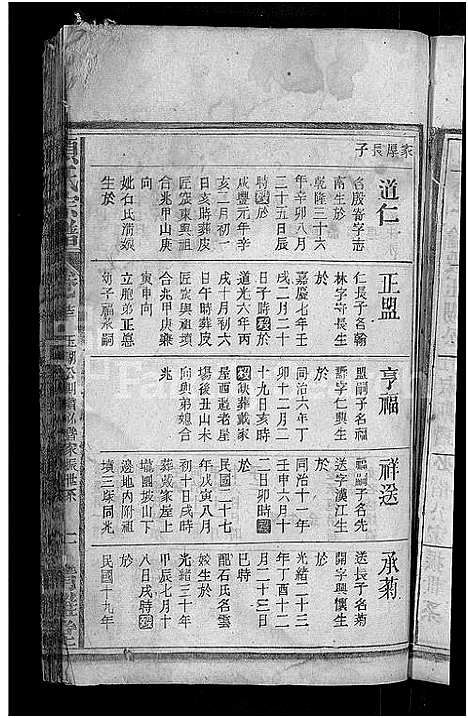 家厚長子
道仁
名殿音字志
南生於
乾隆三十六
年辛卯八月
二十五日辰
時歿於
咸豐元年辛
亥二月初一
日亥時葬皮
匠窊東興祖
合兆甲山庚
向
妣石氏清娘
生於
正盟
仁長子名翰
林字奇長生
於
嘉慶七年壬
戌二月二十
日子時歿於
道光六年丙
戌十月初六
日午時葬皮
匠窊與祖父
合兆甲庚乘
寅申向
立胞弟正慈
幼子福永嗣
亨福
盟嗣子名福
謌字仁與生
於
同治六年丁
卯十二月二
十九日亥時
歿缺葬戴家
屋酉邊老屋
場後丑山未
向與弟媳合
兆
祥送
福嗣子名先
送字漢江生
於
同治十一年
壬申六月十
二日卯時歿
於
民國二十七
年戊寅八月
初十日戌時
葬戴家屋上
壠園坡山下
邊地內附祖
墳三塚同兆
承菊
送長子名菊
開字興懷生
於
光緒二十三
年丁酉十二
月二十三日
巳時
配石氏名雲
姣生於
光緒三十年
甲辰七月十
八日戌時歿
於
民國十九年